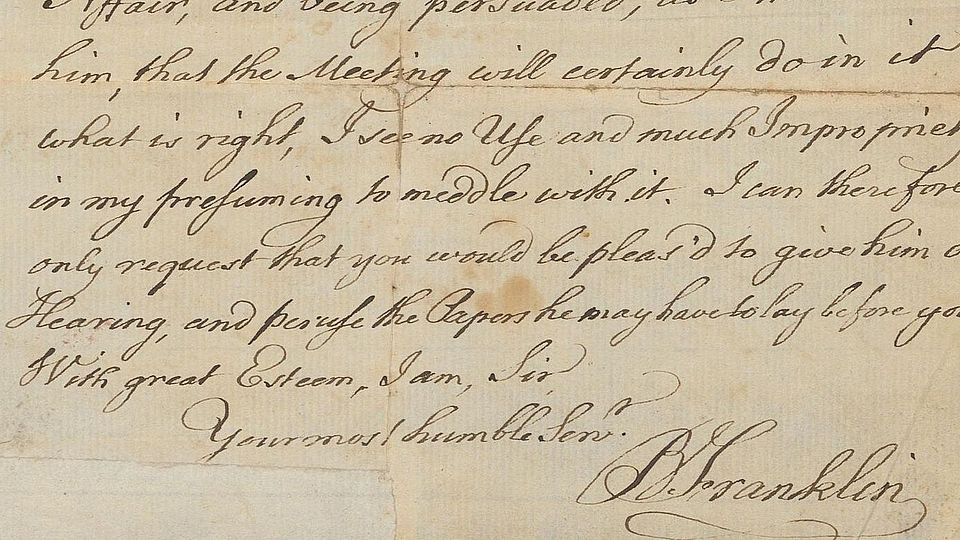 Affair, and being persuaded, as
him, that the Meeting will certainly do in it
what is right, I see no Use and much Impropriet
in my presuming to meddle with it. I can therefore
only request that you would be pleas'd to give him a
Hearing, and peruse the Papers he may have to lay before you
With great Esteem, I am, Sir
Your most humble Servr.
B Franklin